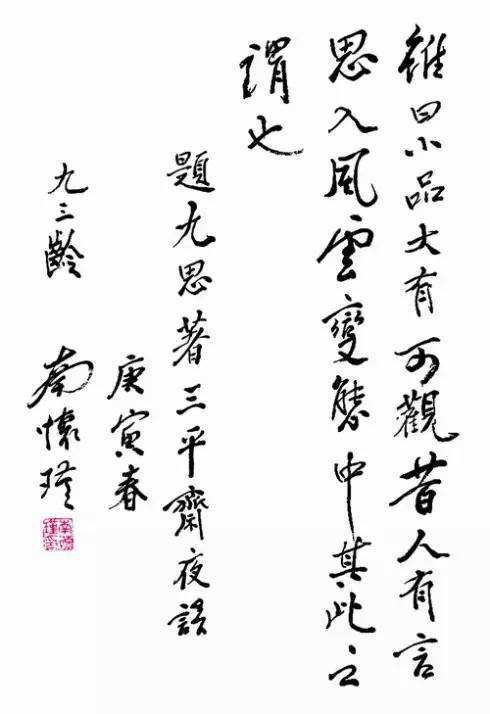 雖曰小品大有可觀昔人有言
思入風雲變態中其此之
謂也
題九思著三平齋夜語
庚寅春
九三齡　南懷瑾